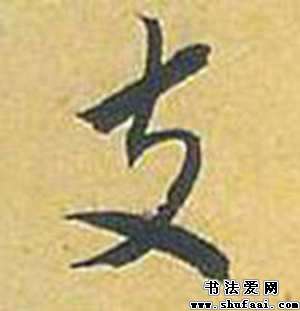 支
书法爱网
www.shufaai.com